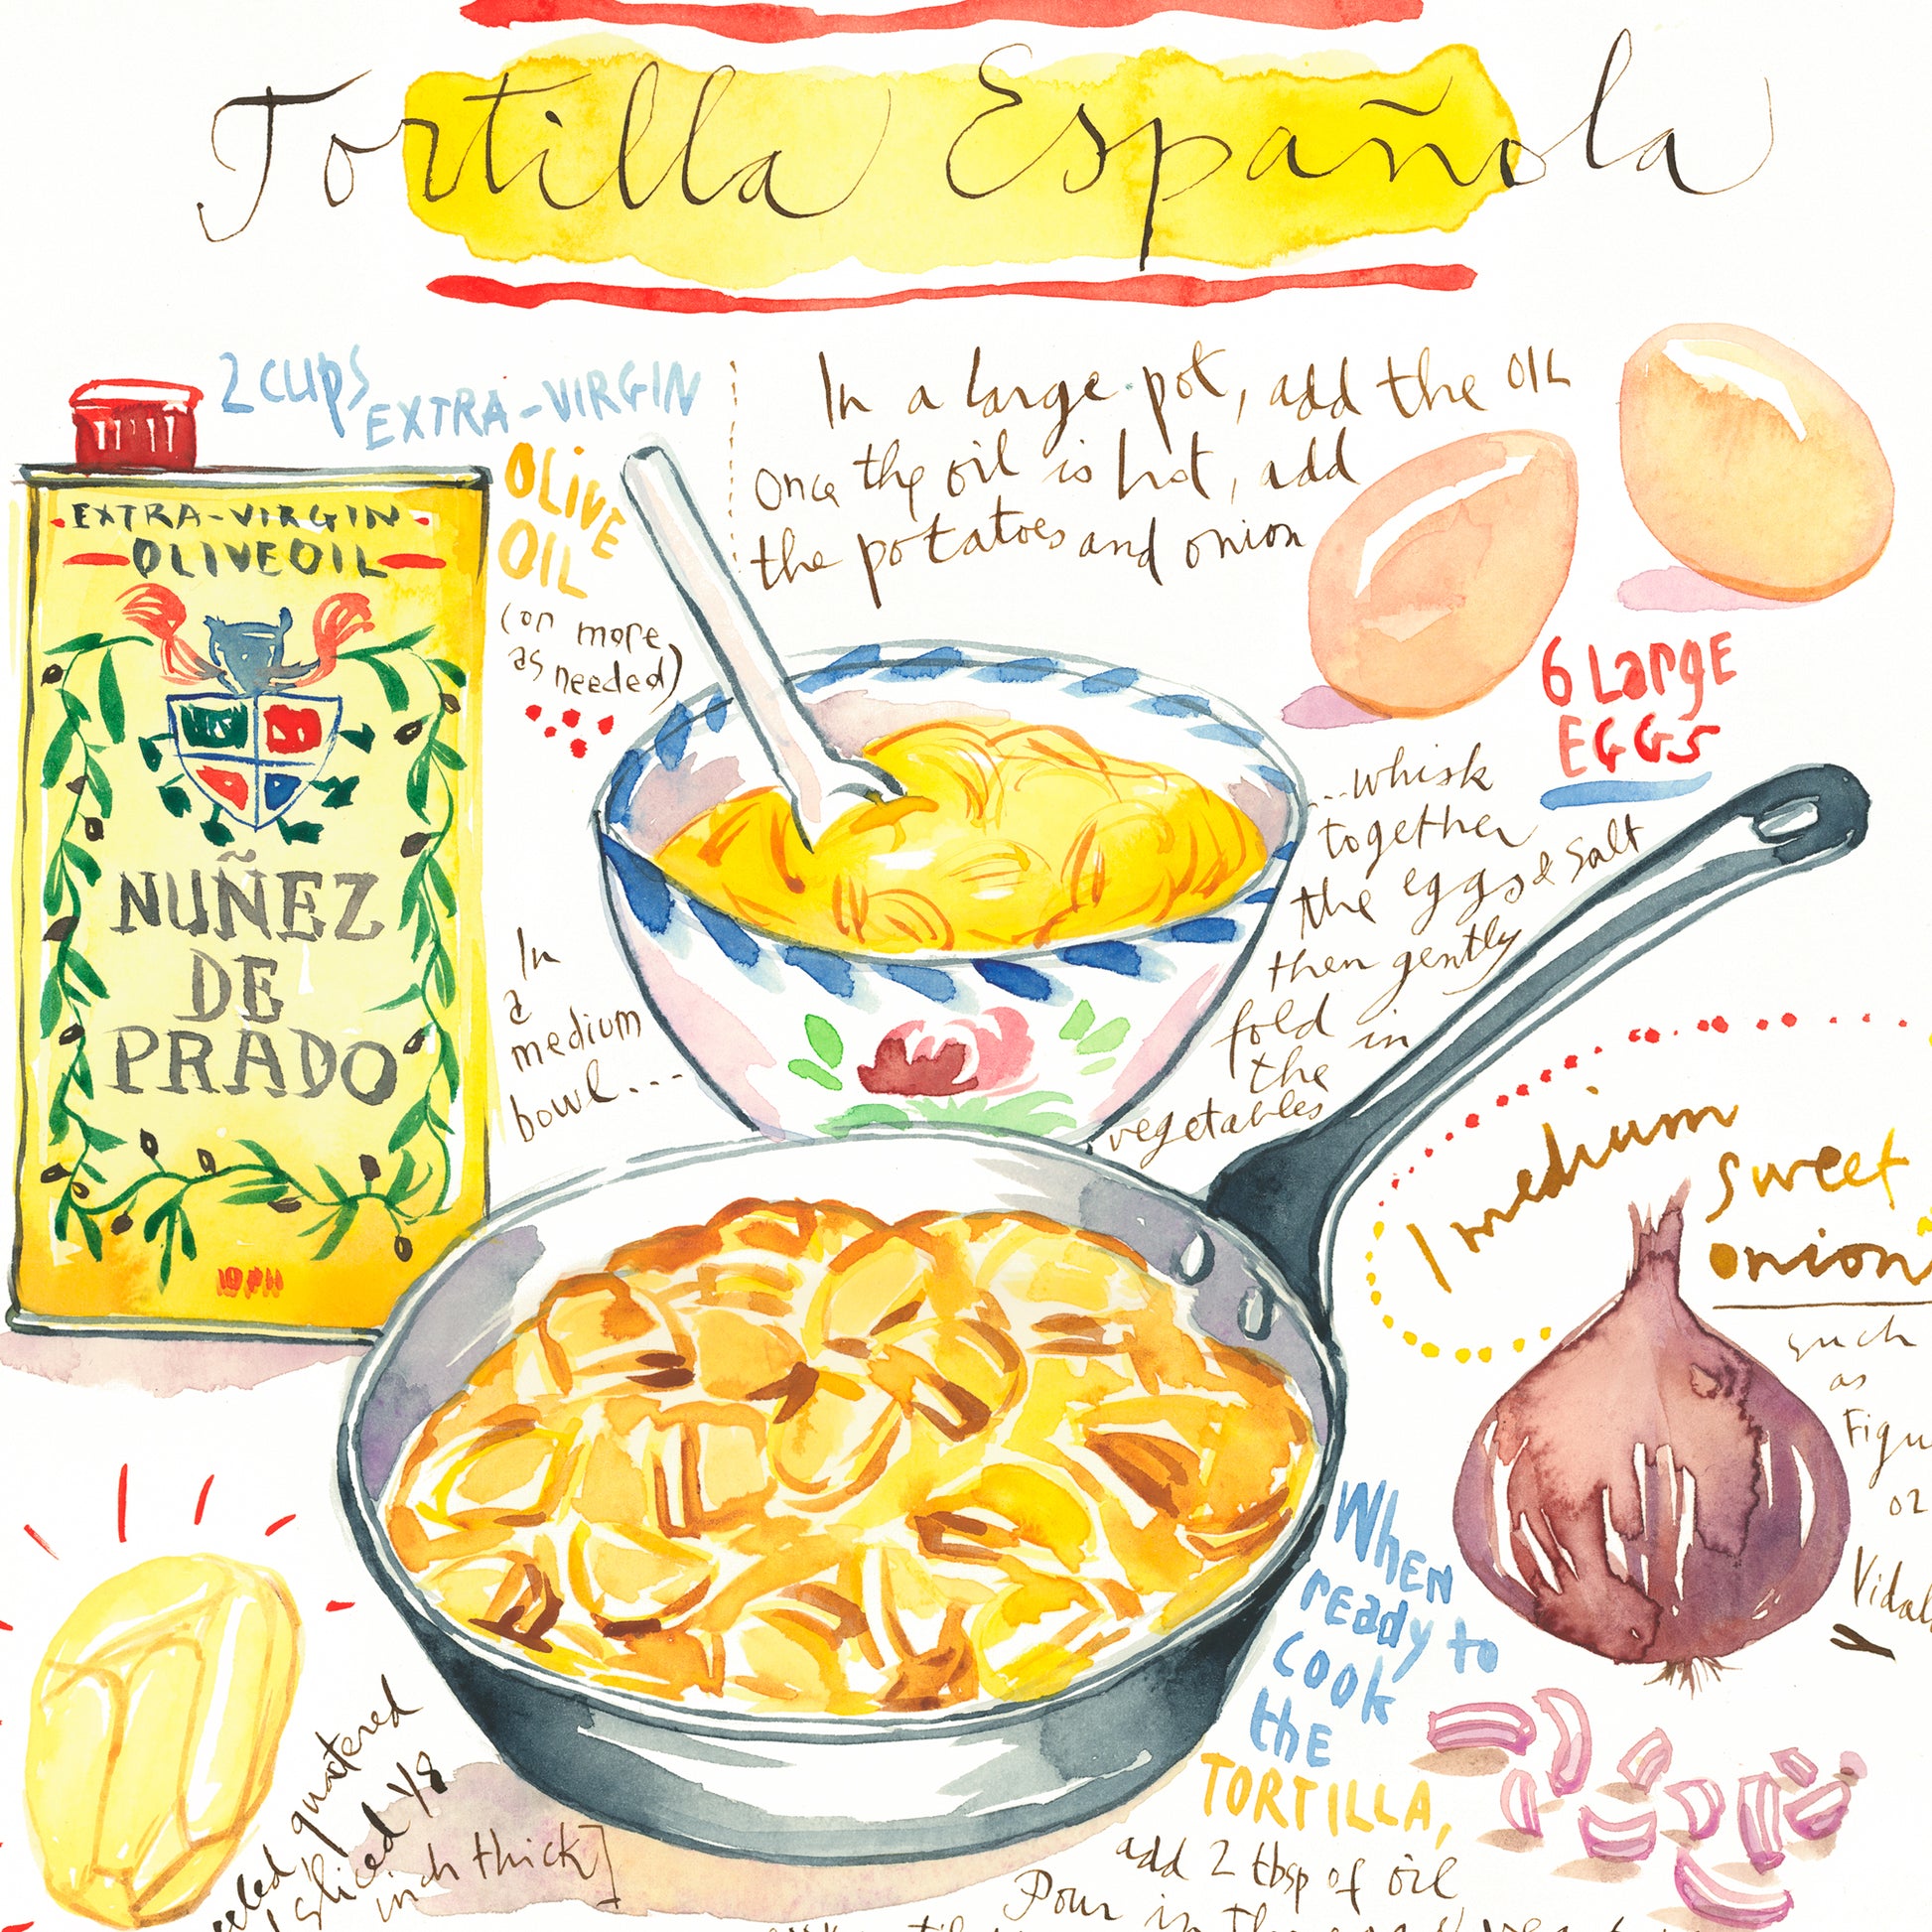 Tortilla Española
2 cups
EXTRA-VIRGIN
OLIVE
OIL
(or more
as needed)
EXTRA-VIRGIN
OLIVE OIL
NUÑEZ
DE
PRADO
In a large pot, add the OIL
Once the oil is hot, add
the potatoes and onion
6 Large
EGGS
In
a
medium
bowl...
...whisk
together
the eggs & salt
then gently
fold in
the
vegetables
1 medium
sweet
onion
such
as
Vidal
When
ready to
cook
the
TORTILLA,
add 2 tbsp of oil
Pour in the
quartered
sliced 1/8
inch thick]